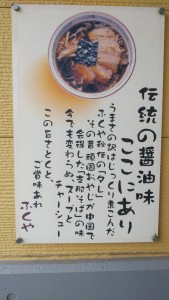 伝統の醤油味
ここにあり
うまさの訳はじっくり煮こんだ
ふくや秘伝の「タレ」
その昔頑固おやじが中国で
会得した「支那そば」の味
今でも変わらぬ、スープと
チャーシュー
この旨さとくと、
ご賞味あれ
ふくや